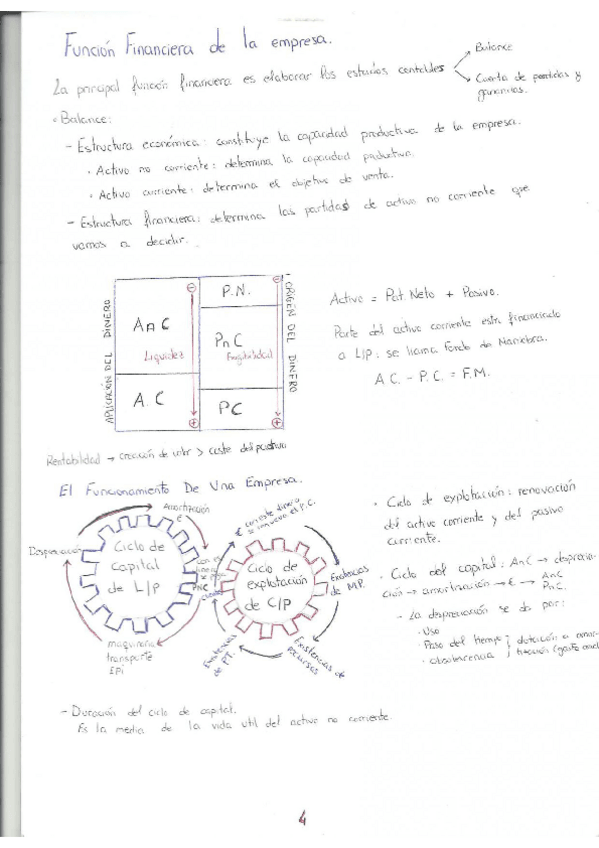 Función Financiera de la empresa.
La principal función financiera es elaborar los estados contables
Balance
Cuenta de perdidas y
ganancias.
• Balance:
- Estructura económica: constituye la capacidad productiva de la empresa.
• Activo no corriente: determina la capacidad productiva.
• Activo corriente: determina el objetivo de venta.
- Estructura financiera: determina las partidas de activo no corriente que
vamos a decidir.
APLICACIÓN DEL DINERO
AnC
A.C
Liquidez
P.N.
PnC
Exigibilidad
PC
ORIGEN DEL DINERO
Activo = Pat. Neto + Pasivo.
Parte del activo corriente esta financiado
a L/P: se llama fondo de Maniobra.
A.C. - P.C. = F.M.
Rentabilidad → creación de valor > coste del pasivo
El Funcionamiento De Una Empresa.
Amortización
€
Depreciación
Ciclo de
Capital
de L/P
maquinaria
transporte
EPi
PNC
€ corriente dinero
se renueva el P.C.
Ciclo de
explotación
de C/P
Existencias
de M.P.
Existencias de
recursos
Existencias
de P.T.
• Ciclo de explotación: renovación
del activo corriente y del pasivo
corriente.
• Ciclo del capital: AnC → deprecia-
ción → amortización → € → AnC
PnC.
- La depreciación se da por:
• Uso
• Paso del tiempo
• obsolescencia
dotación a amor-
tización
- Duración del ciclo de capital.
Es la media de la vida util del activo no corriente.
4